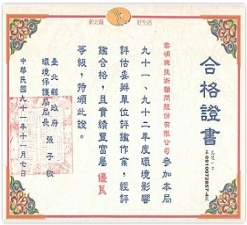 合格證書
參加本局
九十一、九十二年度環境影響
評估委辦單位評鑑作業，經評
鑑合格，且實績豐富屬優良
等級，特頒此證。
臺北縣政府
環境保護局局長
張子敬
中華民國九十一年十一月七日